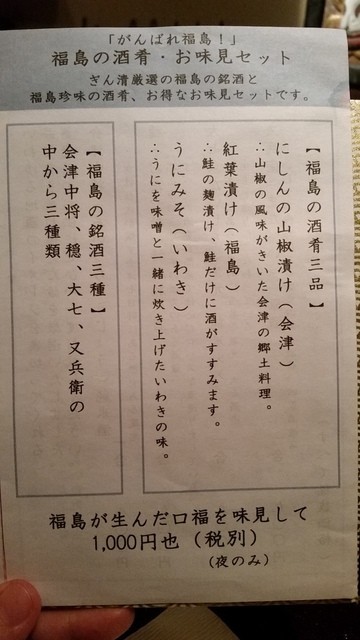 「がんばれ福島！」
福島の酒肴・お味見セット
ぎん漬厳選の福島の銘酒と
福島珍味の酒肴、お得なお味見セットです。
【福島の酒肴三品】
にしんの山椒漬け（会津）
∴山椒の風味がきいた会津の郷土料理。
紅葉漬け（福島）
∴鮭の麹漬け、鮭だけに酒がすすみます。
うにみそ（いわき）
∴うにを味噌と一緒に炊き上げたいわきの味。
【福島の銘酒三種】
会津中将、穏、大七、又兵衛の
中から三種類
福島が生んだ口福を味見して
1,000円也（税別）
（夜のみ）